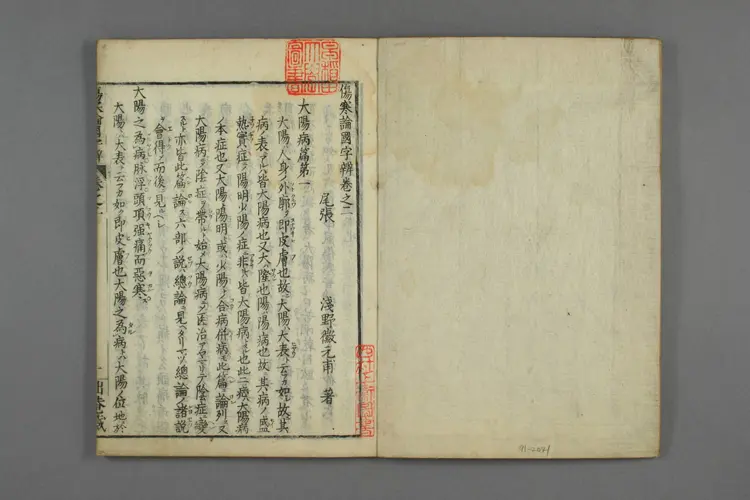 傷寒論國字辨卷之二
尾張 淺野徽元甫著
大陽病篇第一
大陽ハ人身ノ外廓ニ即皮膚也故ニ大陽ハ大表ト云フカ如シ故ニ其
病ノ表ニアルハ皆大陽病也又大ハ隆也陽ハ陽病也故ニ其病ノ盛
熱實症ノ陽明少陽ノ症ニ非ルハ皆大陽病トスル也此二ツ大陽病
ノ本症也又大陽ト陽明ト或ハ少陽トノ合病併病モ此篇ニ論列ス又
大陽病ノ陰症ヲ帶ル始メ大陽病ニテ医治アヤマリテ陰症ニ變
亦皆此篇ニ論ス六部ノ説總論ニ見ヘタリ總論ノ諸説
ヲ會得ノ而後ニ見ルベシ
大陽之為病脉浮頭項强痛而惡寒
大陽ハ大表ト云フカ如シ即皮膚也大陽之為病トハ大陽ノ位地ニ於